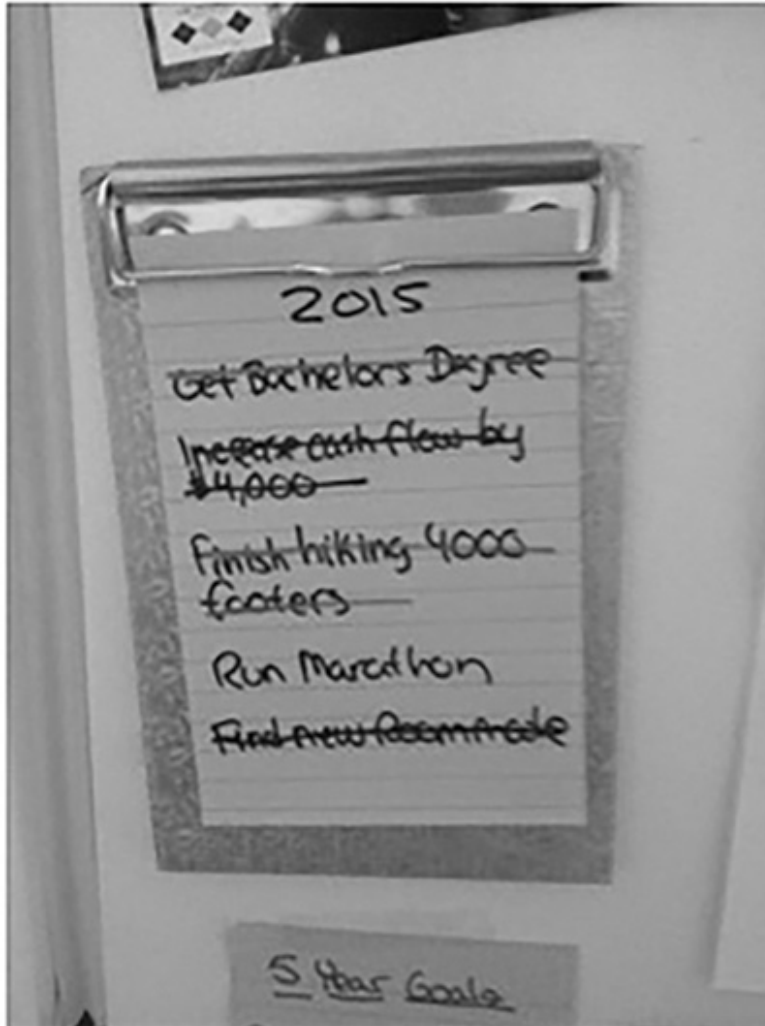 2015
Get Bachelors Degree
Increase cash flow by
$4,000
Finish hiking 4000
footers
Run Marathon
Find new Roommate
5 Year Goals